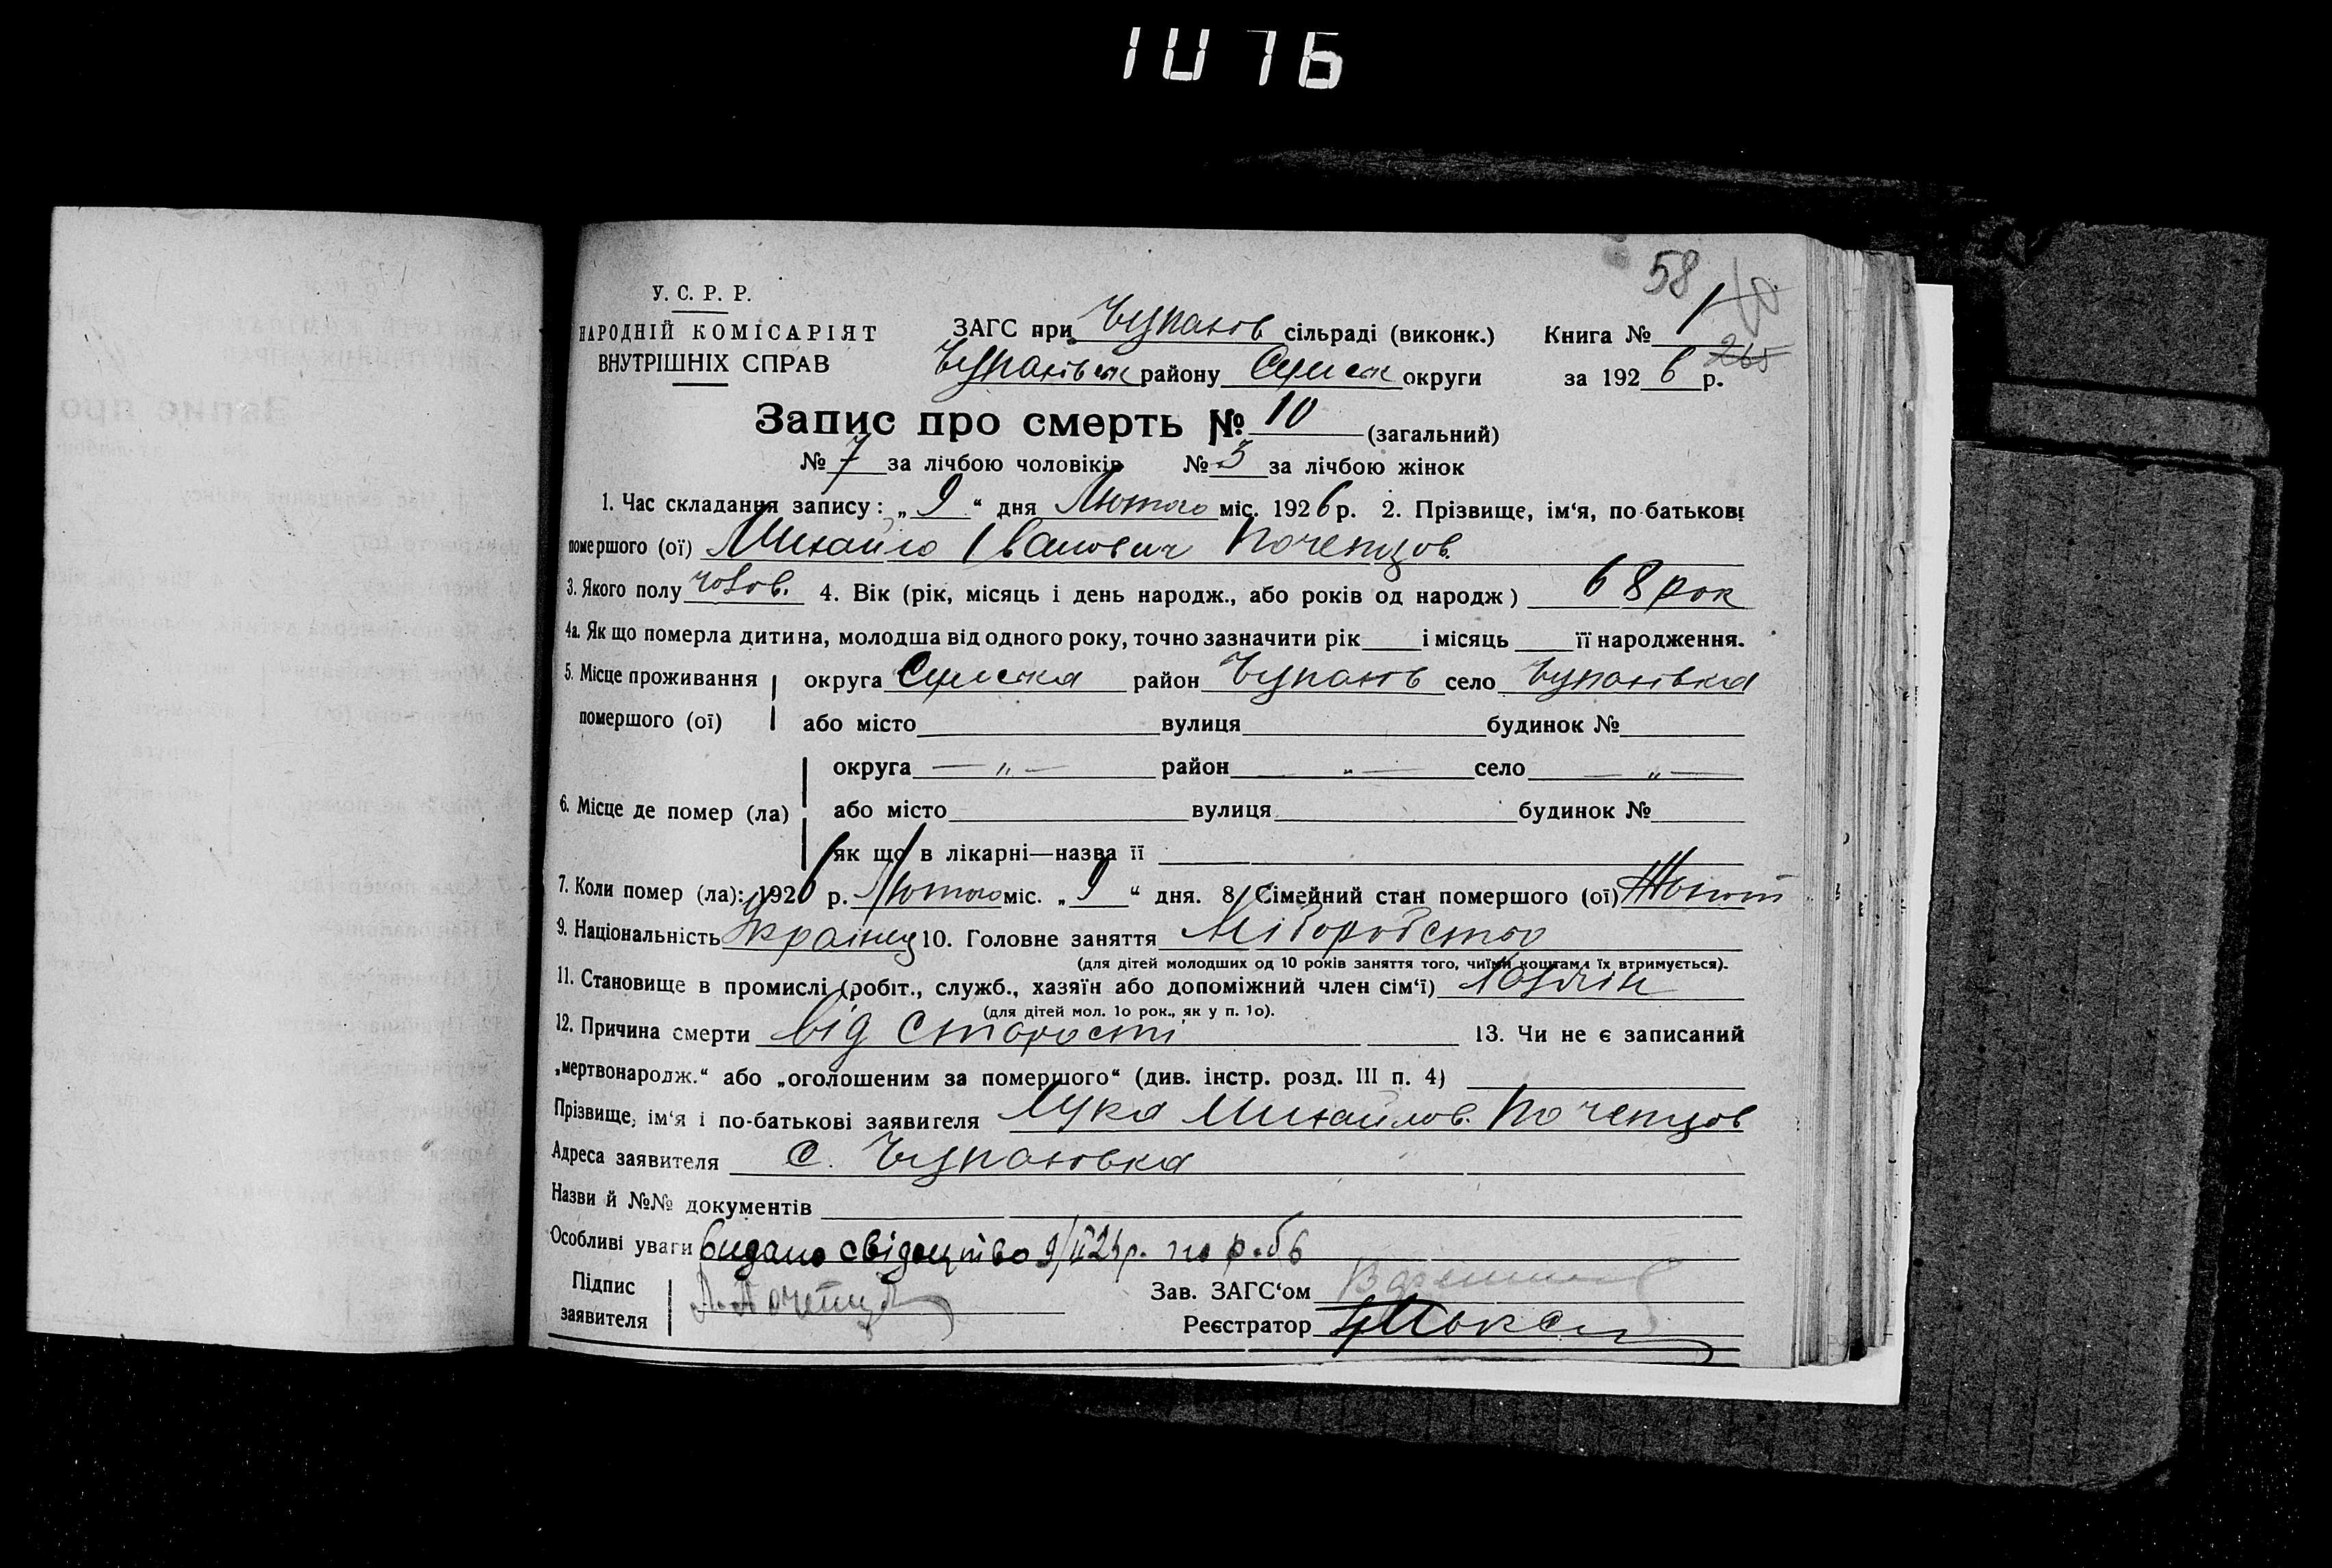 1076
58
У. С. Р. Р.
НАРОДНІЙ КОМІСАРІЯТ
ВНУТРІШНІХ СПРАВ
ЗАГС при Чупахів сільраді (виконк.) Книга № 1
Чупахівськ району Сумськ округи за 1926 р.
265
Запис про смерть № 10 (загальний)
№ 7 за лічбою чоловіків № 3 за лічбою жінок
1. Час складання запису: „9“ дня Лютого міс. 1926 р. 2. Прізвище, ім‘я, по-батькові
помершого (ої) Михайло Іванович Почепцов
3. Якого полу чолов. 4. Вік (рік, місяць і день народж., або років од народж) 68 рок
4а. Як що померла дитина, молодша від одного року, точно зазначити рік і місяць її народження.
5. Місце проживання округа Сумська район Чупахів село Чупахівка
помершого (ої) або місто вулиця будинок №
округа — „ — район — „ — село — „ —
6. Місце де помер (ла) або місто вулиця будинок №
як що в лікарні—назва її
7. Коли помер (ла): 1926 р. Лютого міс. „9“ дня. 8. Сімейний стан помершого (ої) Жонат
9. Національність Українц 10. Головне заняття
(для дітей молодших од 10 років заняття того, чиїми коштами їх втримується).
11. Становище в промислі (робіт., служб., хазяїн або допоміжний член сім‘ї) Хозяін
(для дітей мол. 1о рок., як у п. 1о).
12. Причина смерти від старості 13. Чи не є записаний
„мертвонародж.“ або „оголошеним за помершого“ (див. інстр. розд. III п. 4)
Прізвище, ім‘я і по-батькові заявителя Лука Михайлов. Почепцов
Адреса заявителя с. Чупаховка
Назви й №№ документів
Особливі уваги видано свідоцтво
Підпис
заявителя Л. Почепцов
Зав. ЗАГС‘ом
Реєстратор